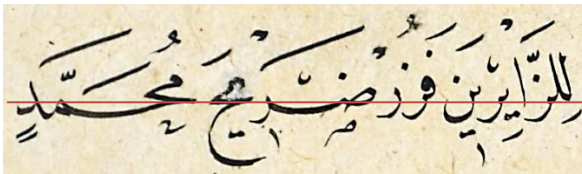 لِلزَّايِرِيْنَ فَزُرْ ضَرِيْحَ مُحَمَّدٍ